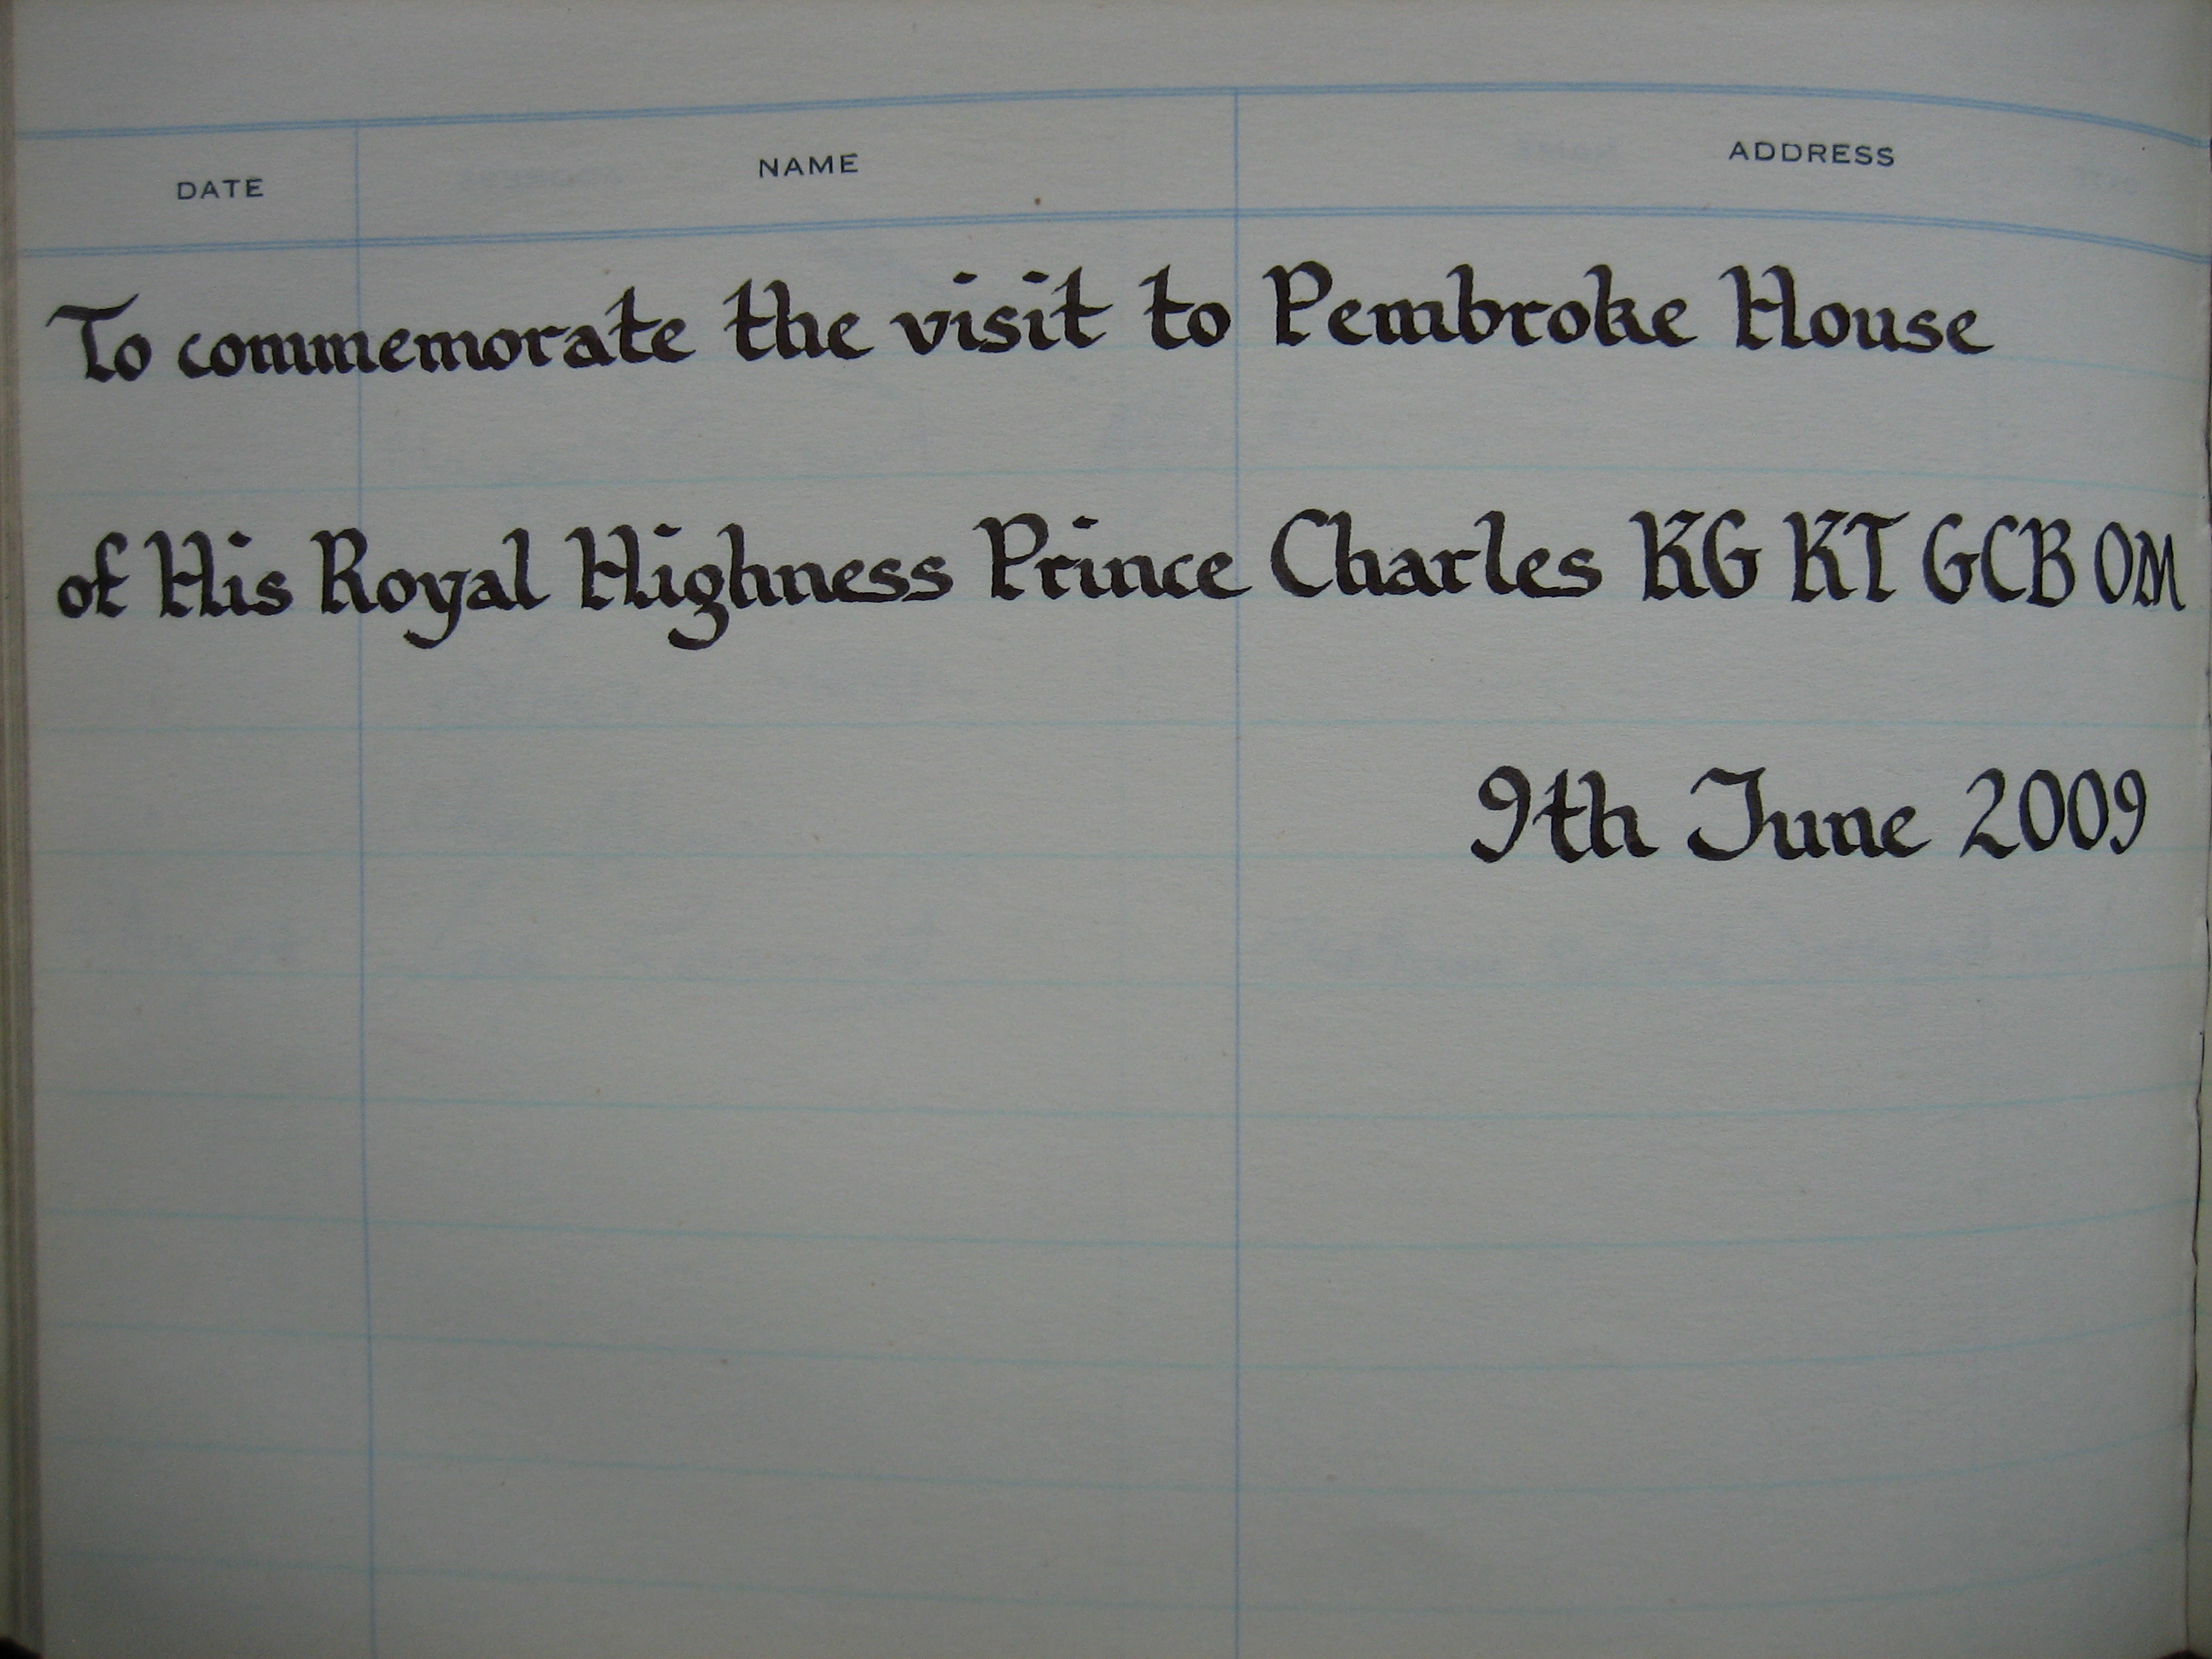 DATE NAME ADDRESS
To commemorate the visit to Pembroke House
of His Royal Highness Prince Charles KG KT GCB OM
9th June 2009